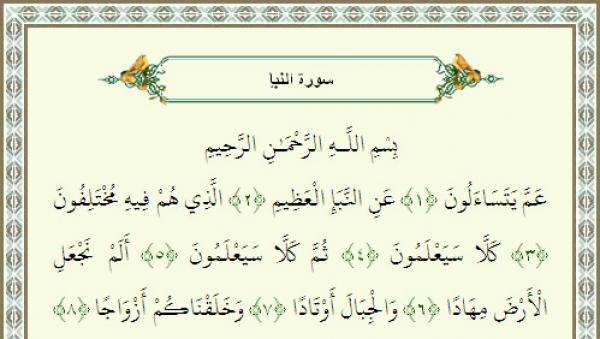 سورة النبإ
بِسْمِ اللَّـهِ الرَّحْمَـٰنِ الرَّحِيمِ
عَمَّ يَتَسَاءَلُونَ ﴿١﴾ عَنِ النَّبَإِ الْعَظِيمِ ﴿٢﴾ الَّذِي هُمْ فِيهِ مُخْتَلِفُونَ
﴿٣﴾ كَلَّا سَيَعْلَمُونَ ﴿٤﴾ ثُمَّ كَلَّا سَيَعْلَمُونَ ﴿٥﴾ أَلَمْ نَجْعَلِ
الْأَرْضَ مِهَادًا ﴿٦﴾ وَالْجِبَالَ أَوْتَادًا ﴿٧﴾ وَخَلَقْنَاكُمْ أَزْوَاجًا ﴿٨﴾